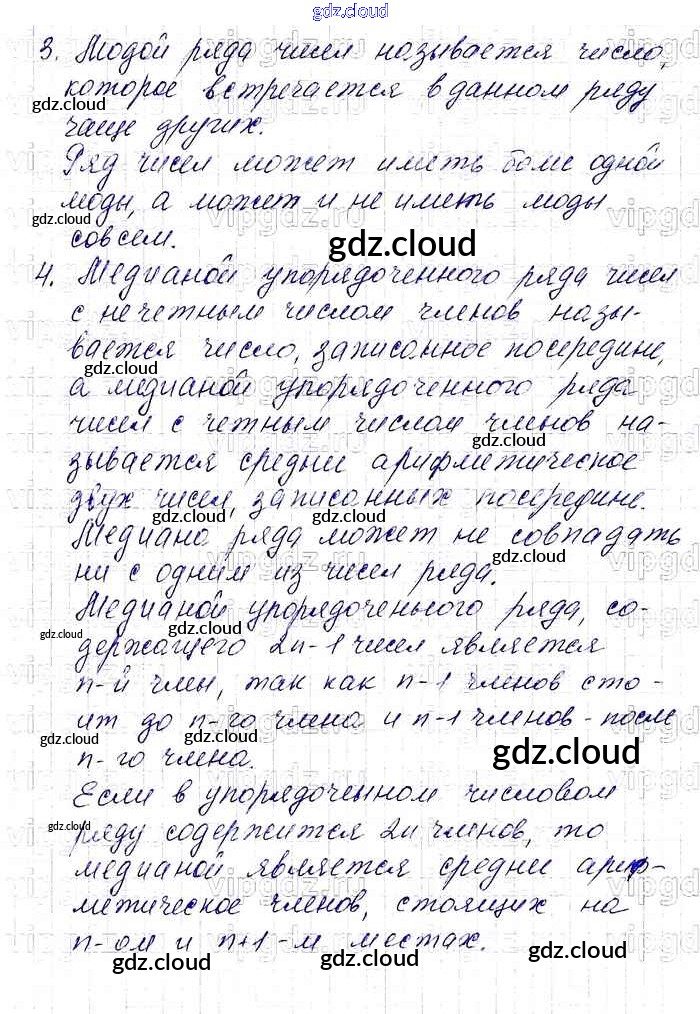 gdz.cloud
3. Модой ряда чисел называется число,
которое встречается в данном ряду
чаще других.
Ряд чисел может иметь более одной
моды, а может и не иметь моды
совсем.
4. Медианой упорядоченного ряда чисел
с нечетным числом членов назы-
вается число, записанное посередине,
а медианой упорядоченного ряда
чисел с четным числом членов на-
зывается среднее арифметическое
двух чисел, записанных посередине.
Медиана ряда может не совпадать
ни с одним из чисел ряда.
Медианой упорядоченного ряда, со-
держащего 2n-1 чисел является
n-й член, так как n-1 членов сто-
ит до n-го члена и n-1 членов - после
n-го члена.
Если в упорядоченном числовом
ряду содержится 2n членов, то
медианой является среднее ариф-
метическое членов, стоящих на
n-ом и n+1-м местах.